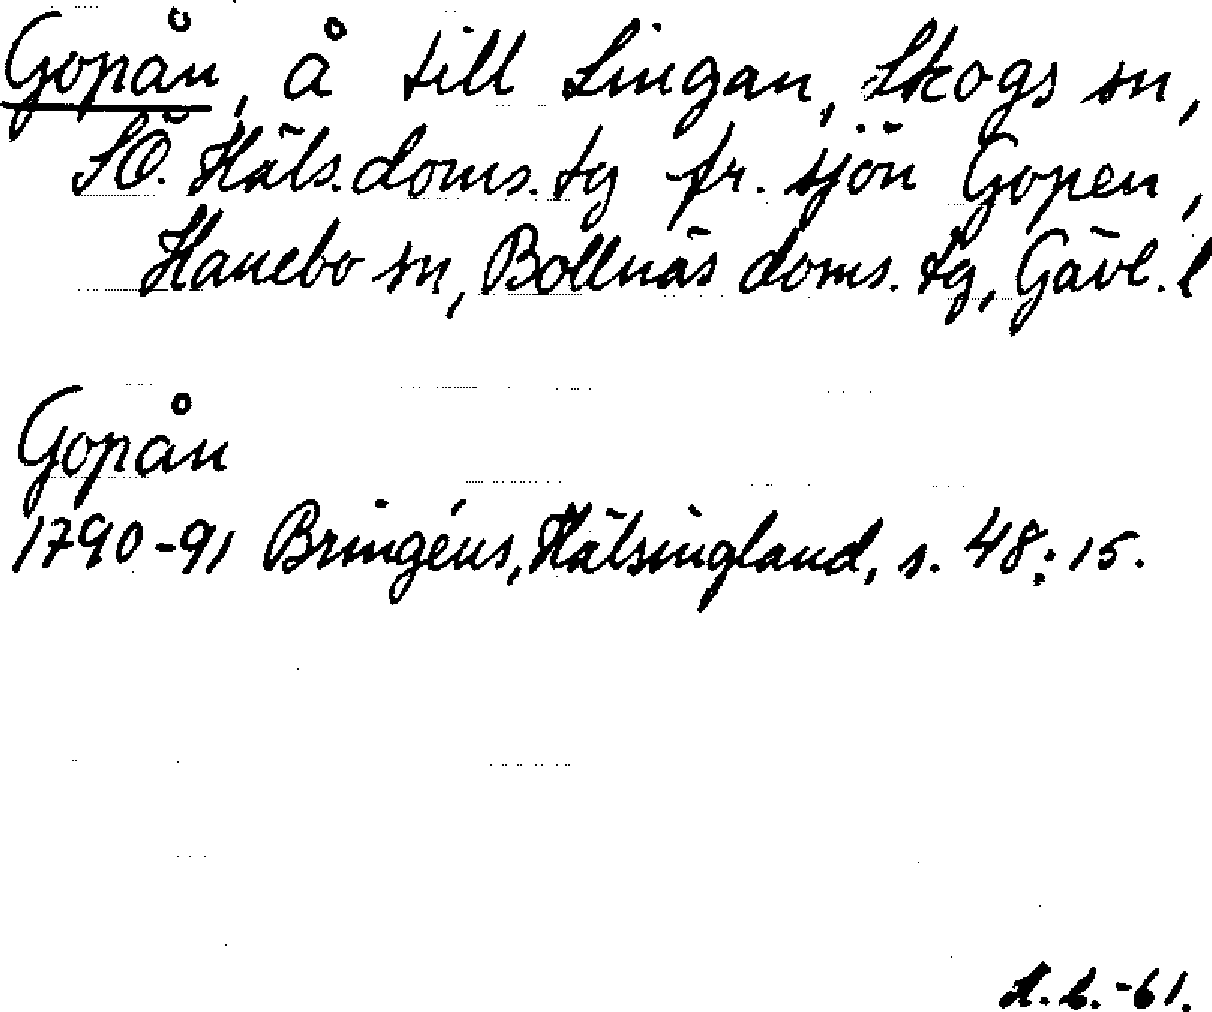 Gopån, å till Lingan, Skogs sn,
SÖ. Häls. doms. tg fr. sjön Gopen,
Hanebo sn, Bollnäs doms. tg, Gävl. l
Gopån
1790-91 Bringéus, Hälsingland, s. 48:15.
-61.